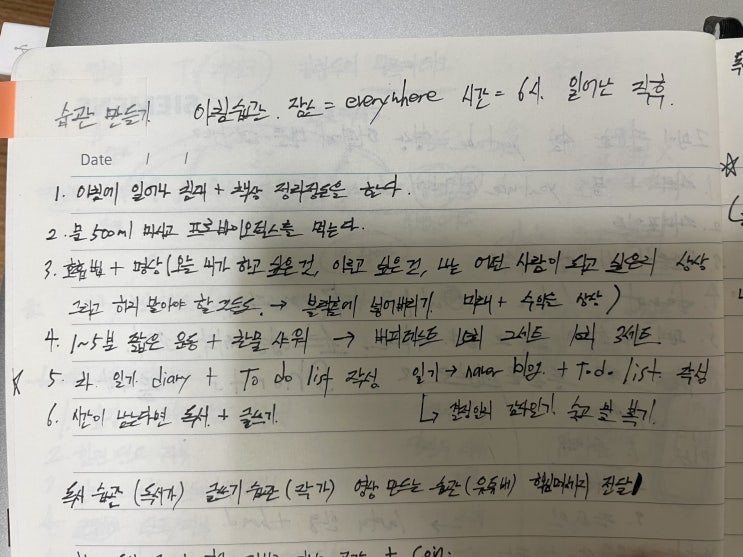 습관 만들기 아침습관. 장소 = everywhere 시간 = 6시. 일어난 직후.
Date
1. 아침에 일어나 침대 + 책상 정리정돈을 한다.
2. 물 500ml 마시고 프로바이오틱스를 먹는다.
3. 호흡법 + 명상(오늘 내가 하고 싶은 것, 이루고 싶은 것, 나는 어떤 사람이 되고 싶은지 상상
그리고 하지 말아야 할 것들도. → 블랙홀에 넣어버리기. 미래 + 수 상상)
4. 1~5분 짧은 운동 + 찬물 샤워 → 버피테스트 10회 2세트 10회 3세트.
5. 일기 diary + To do list 작성 일기 → naver blog. + To do list. 작성
6. 시간이 남는다면 독서. + 글쓰기.
↳ 감사일기. 하루 복기.
독서 습관 (독서가) 글쓰기 습관 (작가) 영상 만드는 습관 (유튜버) 전달